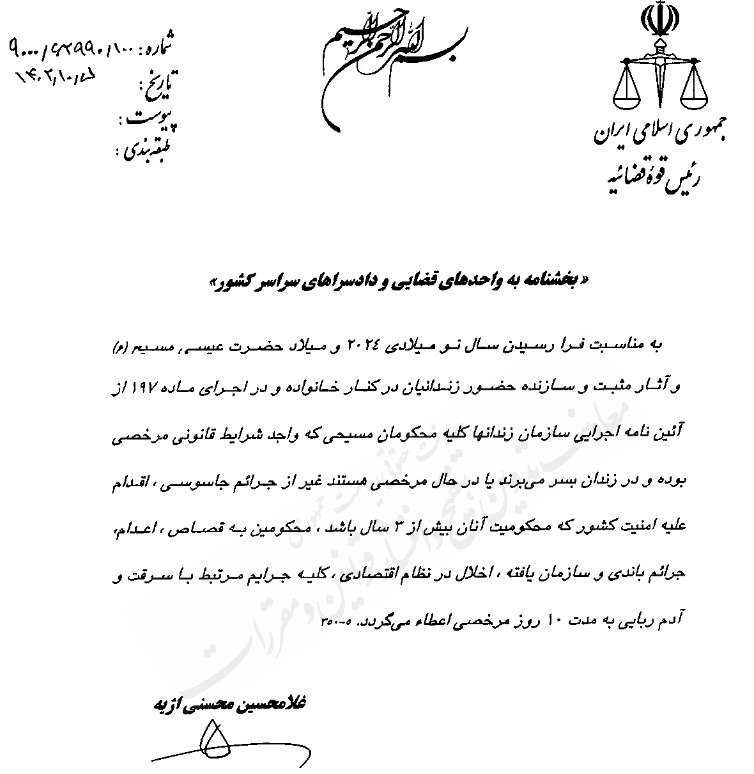 بسم الله الرحمن الرحیم
جمهوری اسلامی ایران
رئیس قوۀ قضائیه
شماره: ۹۰۰۰/۶۲۹۹۰/۱۰۰
تاریخ:
پیوست:
طبقه‌بندی:
«بخشنامه به واحدهای قضایی و دادسراهای سراسر کشور»
به مناسبت فرا رسیدن سال نو میلادی ۲۰۲۴ و میلاد حضرت عیسی مسیح (ع)
و آثار مثبت و سازنده حضور زندانیان در کنار خانواده و در اجرای ماده ۱۹۷ از
آئین نامه اجرایی سازمان زندانها کلیه محکومان مسیحی که واجد شرایط قانونی مرخصی
بوده و در زندان بسر می‌برند یا در حال مرخصی هستند غیر از جرائم جاسوسی ، اقدام
علیه امنیت کشور که محکومیت آنان بیش از ۳ سال باشد ، محکومین به قصاص ، اعدام،
جرائم باندی و سازمان یافته ، اخلال در نظام اقتصادی ، کلیه جرایم مرتبط با سرقت و
آدم ربایی به مدت ۱۰ روز مرخصی اعطاء می‌گردد. ۵-۲۵۰
غلامحسین محسنی اژیه